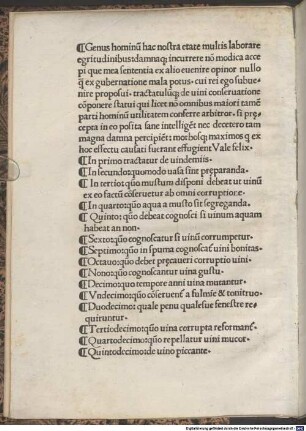 ¶Genus hominũ hac nostra etate multis laborare
egritudinibus:damnaq; incurrere nõ modica acce
pi que mea sententia ex alio euenire opinor nullo
q̃ ex gubernatione mala potus· cui rei ego subue
nire proposui· tractatulũq; de uini conseruatione
cõponere statui qui licet nõ omnibus maiori tamẽ
parti hominũ utilitatem conferre arbitror· si pre
cepta in eo posita sane intelligẽt nec decetero tam
magna damna percipiẽt: morbosq; maximos q ex
hoc effectu causati fuerant effugient Vale felix·
¶In primo tractatur de uindemiis·
¶In secundo:quomodo uasa sint preparanda·
¶In tertio:quo mustum disponi debeat ut uinũ
ex eo factũ cõseruetur ab omni corruptione·
¶In quarto:quo aqua a musto sit segreganda·
¶Quinto: quo debeat cognosci si uinum aquam
habeat an non·
¶Sexto:quo cognoscatur si uinũ corrumpetur·
¶Septimo:quo in spuma cognoscat̃ uini bonitas·
¶Octauo:quo debet p̃caueri corruptio uini·
¶Nono:quo cognoscantur uina gustu·
¶Decimo:quo tempore anni uina mutantur·
¶Vndecimo:quo cõseruent̃ a fulmĩe & tonitruo·
¶Duodecimo: quale penu qualesue fenestre re-
quiruntur·
¶Tertiodecimo:quo uina corrupta reformant̃·
¶Quartodecimo:quo repellatur uini mucor·
¶Quintodecimo:de uino piccante·